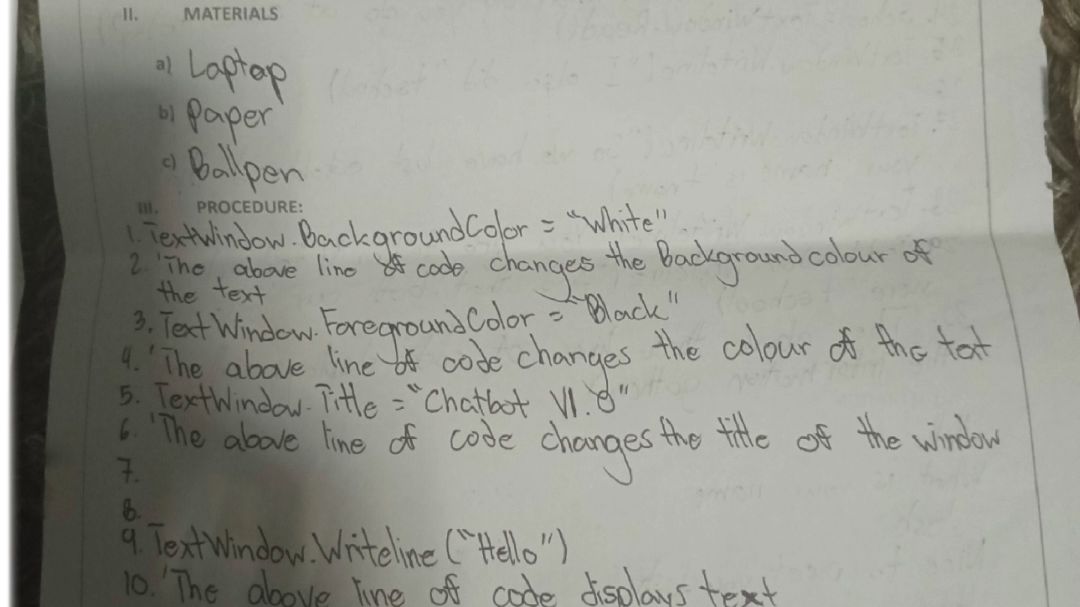 II. MATERIALS
a) Laptop
b) Paper
c) Ballpen
III. PROCEDURE:
1. TextWindow.BackgroundColor = "White"
2. 'The above line of code changes the Background colour of
the text
3. TextWindow.ForegroundColor = "Black"
4. 'The above line of code changes the colour of the text
5. TextWindow.Title = "Chatbot V1.0"
6. 'The above line of code changes the title of the window
7.
8.
9. TextWindow.Writeline ("Hello")
10. 'The above line of code displays text